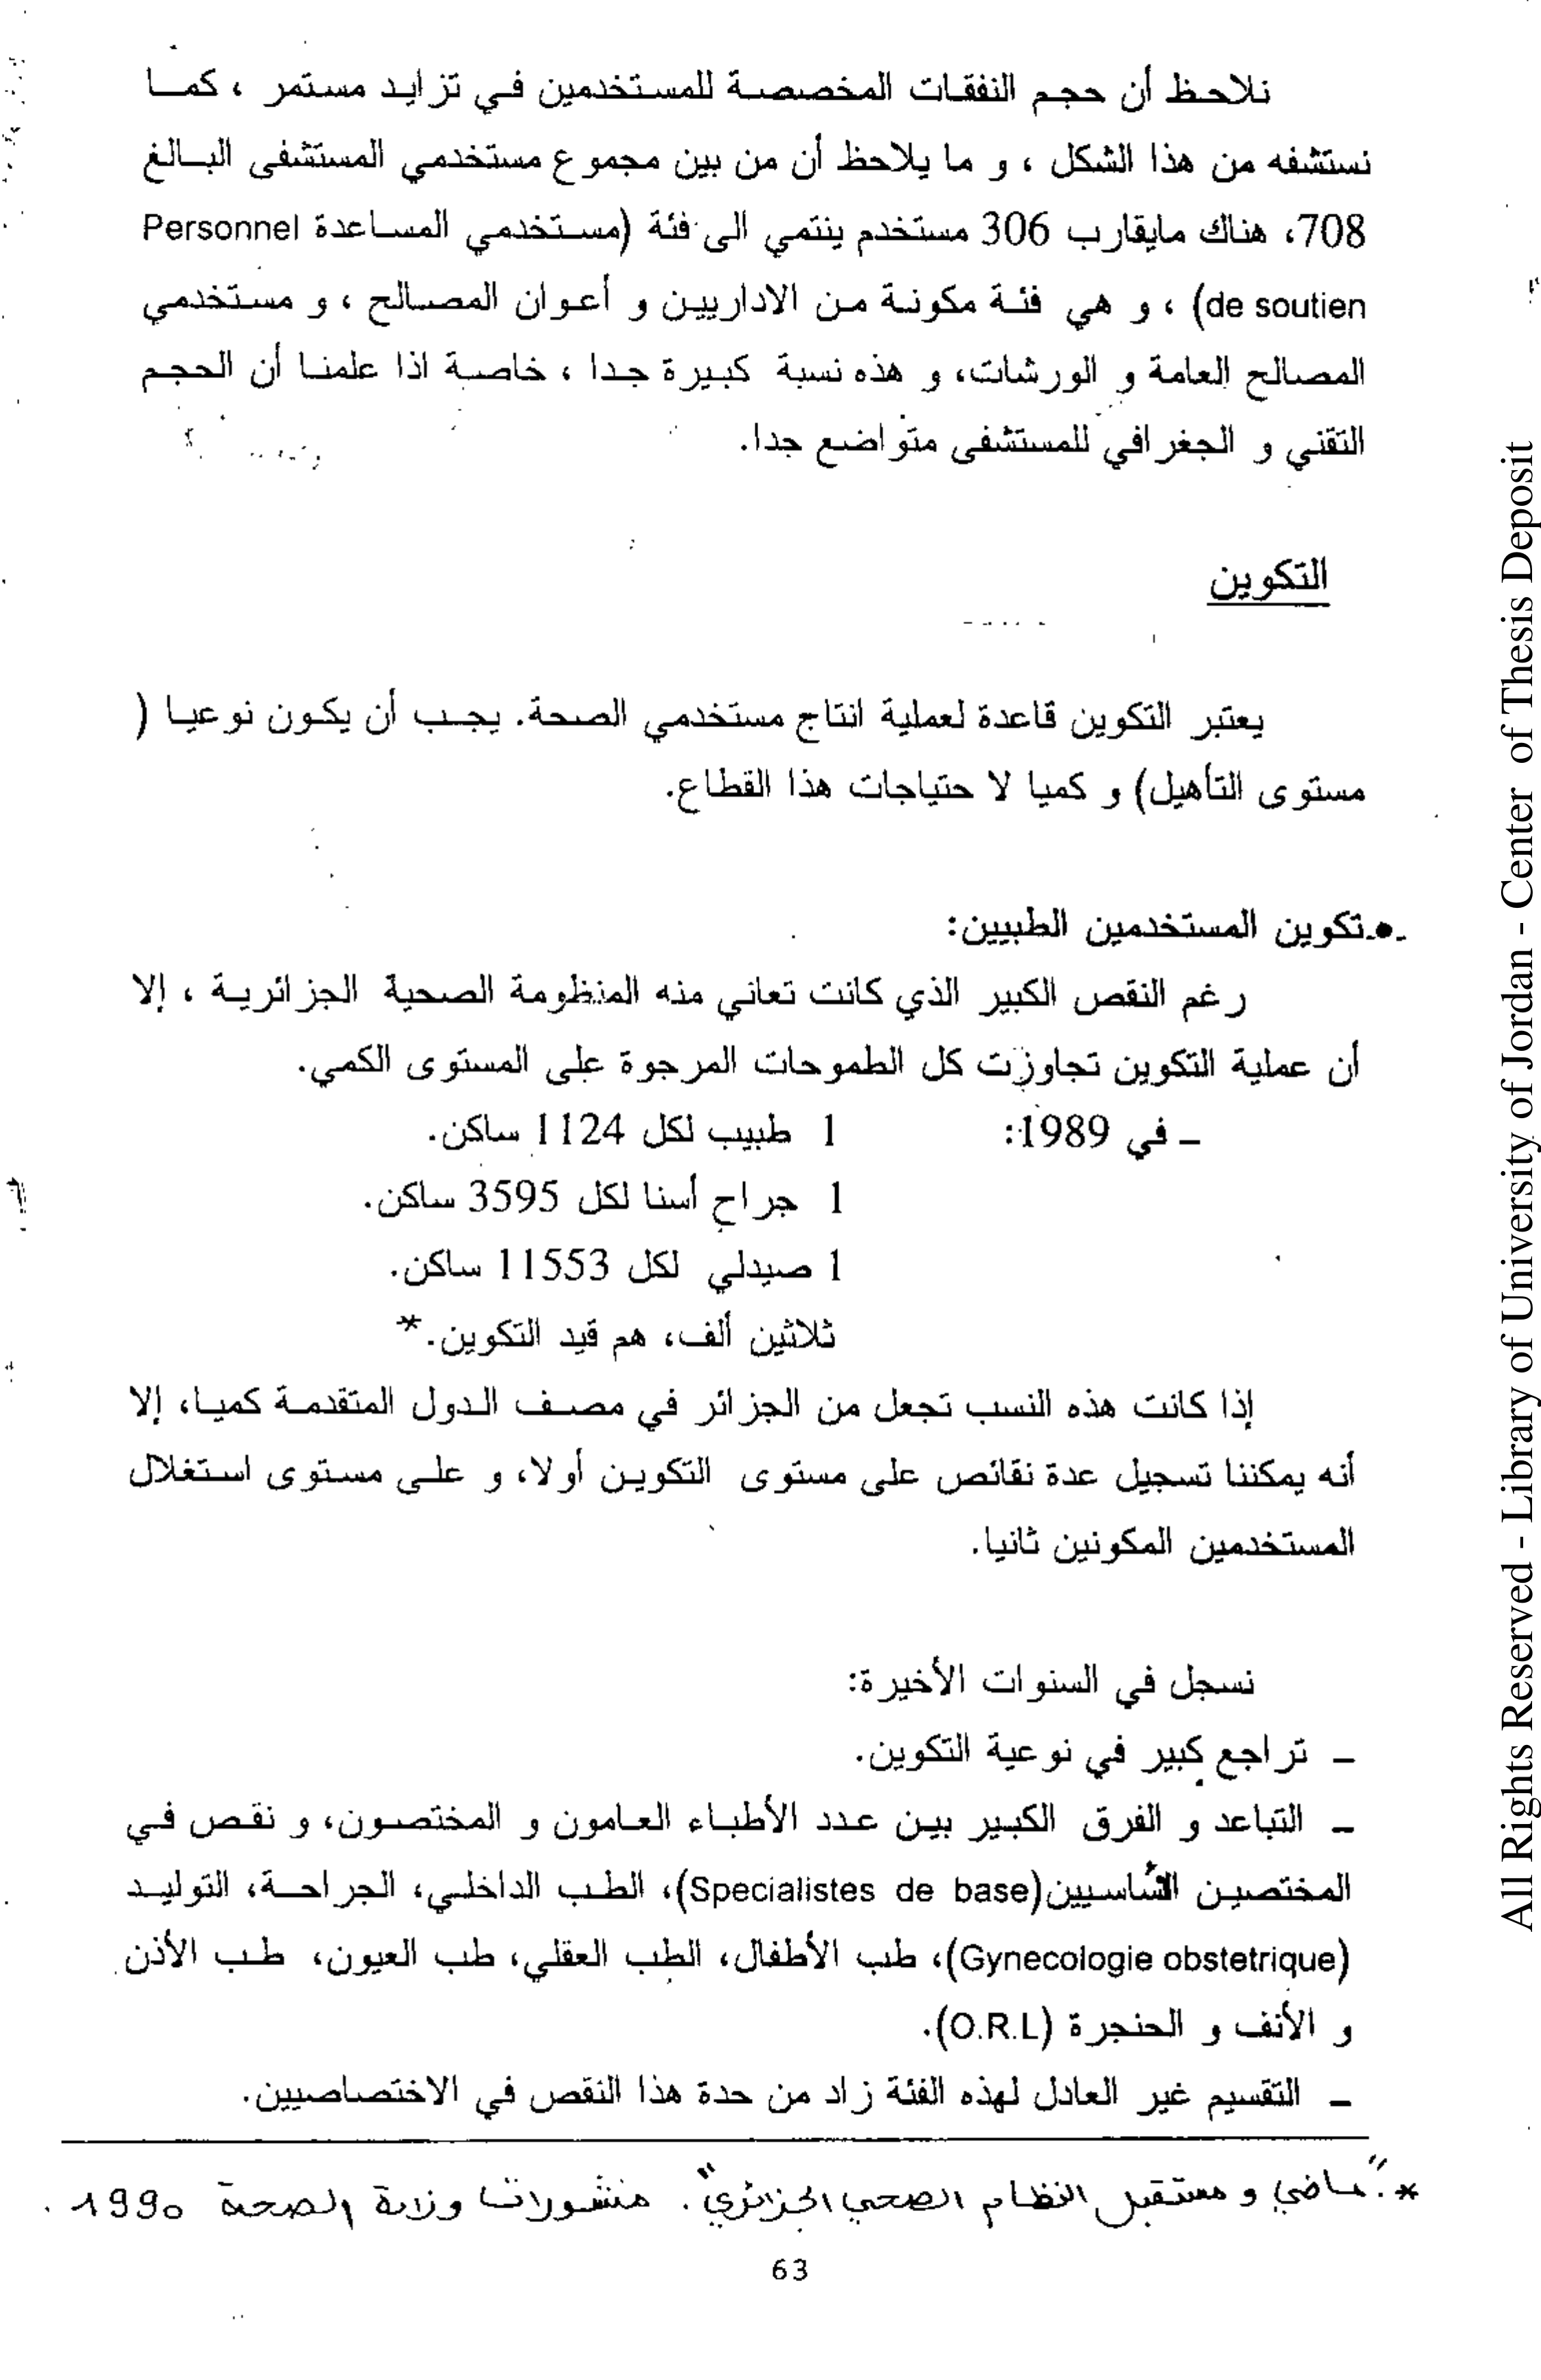 نلاحظ أن حجم النفقات المخصصة للمستخدمين في تزايد مستمر ، كما
نستشفه من هذا الشكل ، و ما يلاحظ أن من بين مجموع مستخدمي المستشفى البالغ
708، هناك مايقارب 306 مستخدم ينتمي الى فئة (مستخدمي المساعدة Personnel
de soutien) ، و هي فئة مكونة من الاداريين و أعوان المصالح ، و مستخدمي
المصالح العامة و الورشات، و هذه نسبة كبيرة جدا ، خاصة اذا علمنا أن الحجم
التقني و الجغرافي للمستشفى متواضع جدا.
التكوين
يعتبر التكوين قاعدة لعملية انتاج مستخدمي الصحة. يجب أن يكون نوعيا (
مستوى التأهيل) و كميا لا حتياجات هذا القطاع.
-•-تكوين المستخدمين الطبيين:
رغم النقص الكبير الذي كانت تعاني منه المنظومة الصحية الجزائرية ، إلا
أن عملية التكوين تجاوزت كل الطموحات المرجوة على المستوى الكمي.
– في 1989: 1 طبيب لكل 1124 ساكن.
1 جراح أسنا لكل 3595 ساكن.
1 صيدلي لكل 11553 ساكن.
ثلاثين ألف، هم قيد التكوين.*
إذا كانت هذه النسب تجعل من الجزائر في مصف الدول المتقدمة كميا، إلا
أنه يمكننا تسجيل عدة نقائص على مستوى التكوين أولا، و على مستوى استغلال
المستخدمين المكونين ثانيا.
نسجل في السنوات الأخيرة:
– تراجع كبير في نوعية التكوين.
– التباعد و الفرق الكبير بين عدد الأطباء العامون و المختصون، و نقص في
المختصين (Specialistes de base)، الطب الداخلي، الجراحة، التوليد
(Gynecologie obstetrique)، طب الأطفال، الطب العقلي، طب العيون، طب الأذن
و الأنف و الحنجرة (O.R.L).
– التقسيم غير العادل لهذه الفئة زاد من حدة هذا النقص في الاختصاصيين.
*. "ماضي و مستقبل النظام الصحي الجزائري". منشورات وزارة الصحة 1990 .
63
All Rights Reserved - Library of University of Jordan - Center of Thesis Deposit